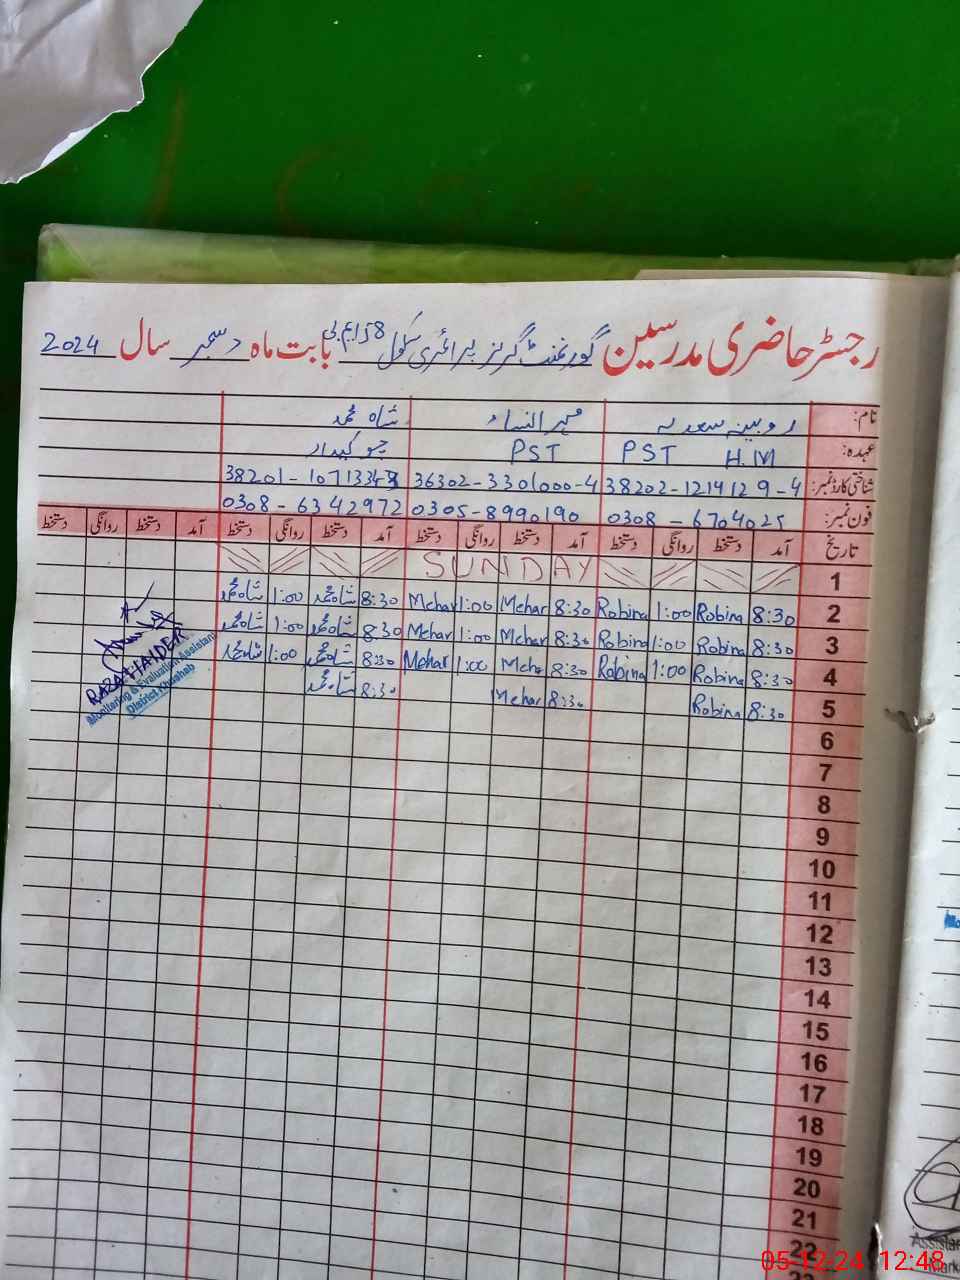 رجسٹر حاضری مدرسین گورنمنٹ گرلز پرائمری سکول 8 ایم بی بابت ماہ دسمبر سال 2024
نام: روبینہ سعدیہ مہرالنساء شاہ محمد
عہدہ: PST H.M PST چوکیدار
شناختی کارڈ نمبر: 38202-1214129-4 36302-3301000-4 38201-1071334
فون نمبر: 0308-6704025 0305-8990190 0308-6342972
تاریخ آمد دستخط روانگی دستخط آمد دستخط روانگی دستخط آمد دستخط روانگی دستخط آمد دستخط روانگی دستخط
1 SUNDAY
2 8:30 Robina 1:00 Robina 8:30 Mehar 1:00 Mehar 8:30 شاہ محمد 1:00 شاہ محمد
3 8:30 Robina 1:00 Robina 8:30 Mehar 1:00 Mehar 8:30 شاہ محمد 1:00 شاہ محمد
4 8:30 Robina 1:00 Robina 8:30 Mehar 1:00 Mehar 8:30 شاہ محمد 1:00 شاہ محمد
5 8:30 Robina 8:30 Mehar 8:30 شاہ محمد
RAZA HAIDER
Monitoring & Evaluation Assistant
District Khushab
6
7
8
9
10
11
12
13
14
15
16
17
18
19
20
21
22
23
05-12-24 12:48